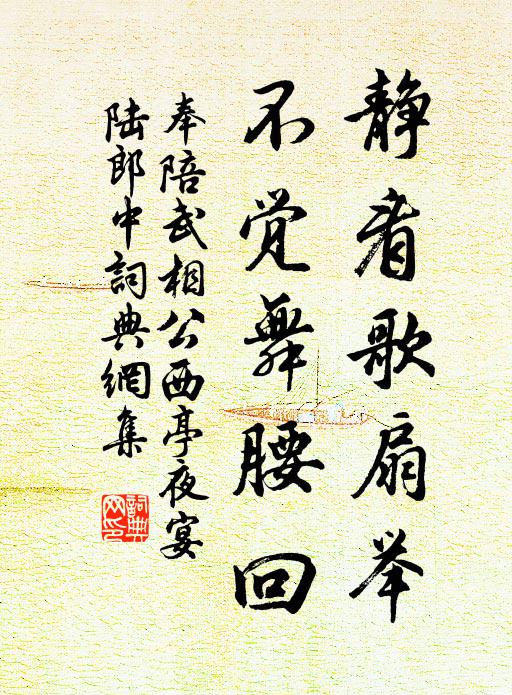 静看歌扇举
不觉舞腰回
奉陪武相公西亭夜宴
陆郎中詞典網集
詞典网印